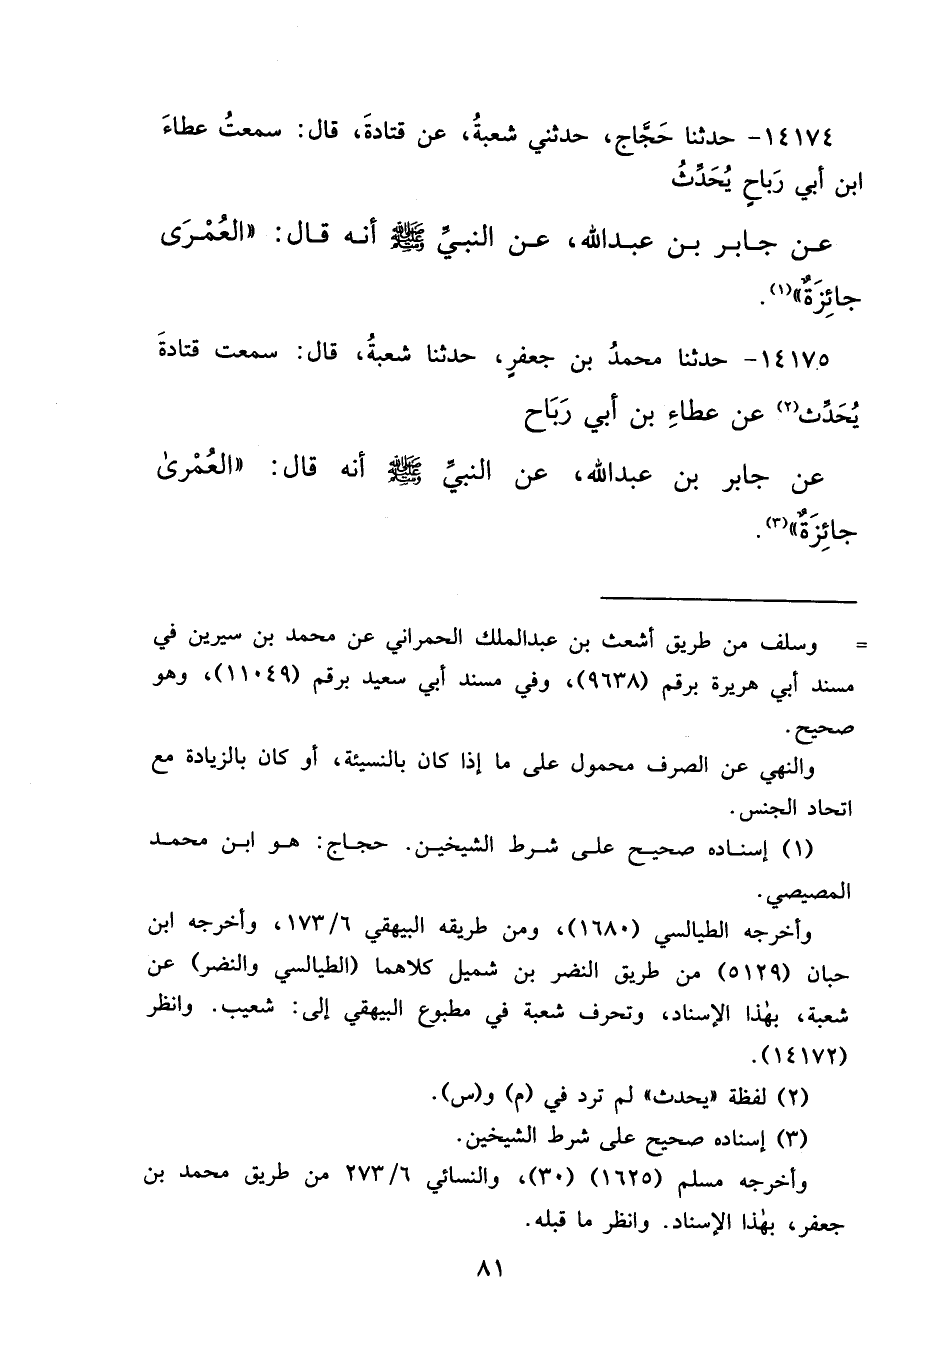 ١٤١٧٤- حدثنا حَجَّاج، حدثني شعبةُ، عن قتادةَ، قال: سمعتُ عطاءَ
ابن أبي رَباحٍ يُحَدِّثُ
عن جابر بن عبدالله، عن النبيِّ ﷺ أنه قال: «العُمْرَى
جائِزَةٌ»(١).
١٤١٧٥- حدثنا محمدُ بن جعفرٍ، حدثنا شعبةُ، قال: سمعت قتادةَ
يُحَدِّث(٢) عن عطاءِ بن أبي رَبَاح
عن جابر بن عبدالله، عن النبيِّ ﷺ أنه قال: «العُمْرىٰ
جائِزَةٌ»(٣).
= وسلف من طريق أشعث بن عبدالملك الحمراني عن محمد بن سيرين في
مسند أبي هريرة برقم (٩٦٣٨)، وفي مسند أبي سعيد برقم (١١٠٤٩)، وهو
صحيح.
والنهي عن الصرف محمول على ما إذا كان بالنسيئة، أو كان بالزيادة مع
اتحاد الجنس.
(١) إسناده صحيح على شرط الشيخين. حجاج: هو ابن محمد
المصيصي.
وأخرجه الطيالسي (١٦٨٠)، ومن طريقه البيهقي ١٧٣/٦، وأخرجه ابن
حبان (٥١٢٩) من طريق النضر بن شميل كلاهما (الطيالسي والنضر) عن
شعبة، بهٰذا الإسناد، وتحرف شعبة في مطبوع البيهقي إلى: شعيب. وانظر
(١٤١٧٢).
(٢) لفظة «يحدث» لم ترد في (م) و(س).
(٣) إسناده صحيح على شرط الشيخين.
وأخرجه مسلم (١٦٢٥) (٣٠)، والنسائي ٢٧٣/٦ من طريق محمد بن
جعفر، بهٰذا الإسناد. وانظر ما قبله.
٨١